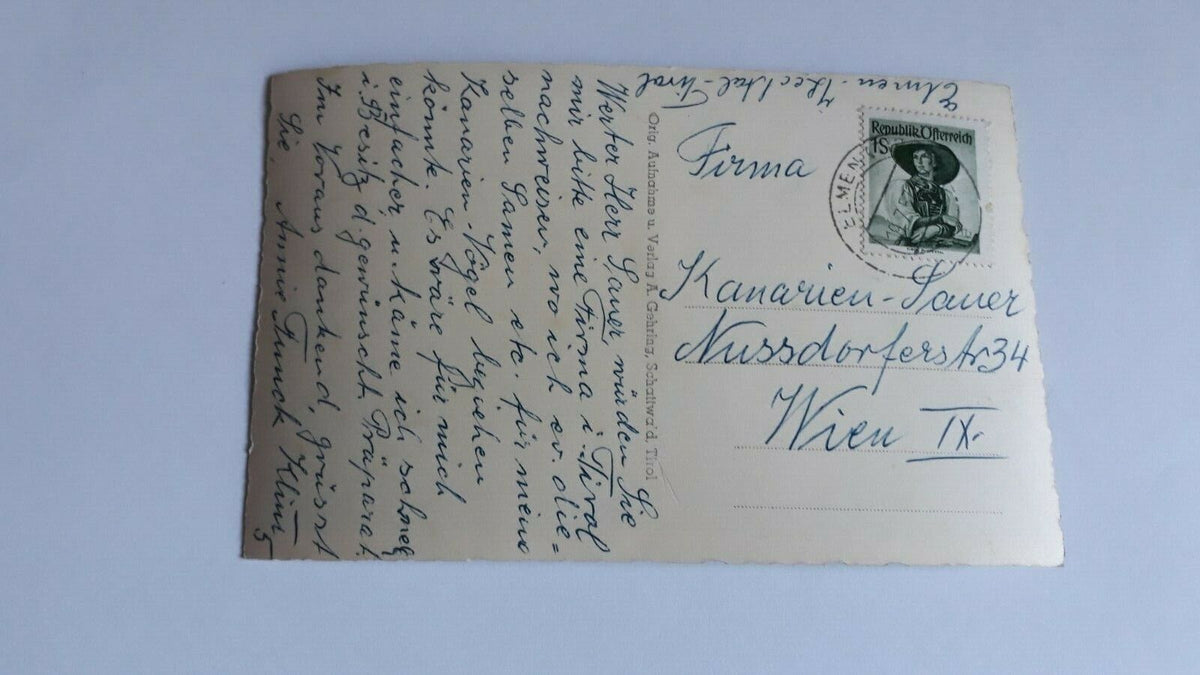 Elmen - Lechtal - Tirol
Werter Herr Sauer, würden Sie
mir bitte eine Firma i. Tirol
nachweisen, wo ich ev. die=
selben Samen etc. für meine
Kanarien-Vögel beziehen
könnte. Es wäre für mich
einfacher u. käme ich schnell
i. Besitz d. gewünscht. Präparat.
Im Voraus dankend, grüsst
Sie, Annie
Orig. Aufnahme u. Verlag A. Gehring, Schattwald, Tirol
Republik Österreich
1 S
ELMEN
Firma
Kanarien-Sauer
Nussdorferstr 34
Wien IX.